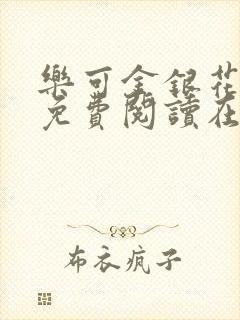 樂可金銀花
免費閱讀在
布衣疯子